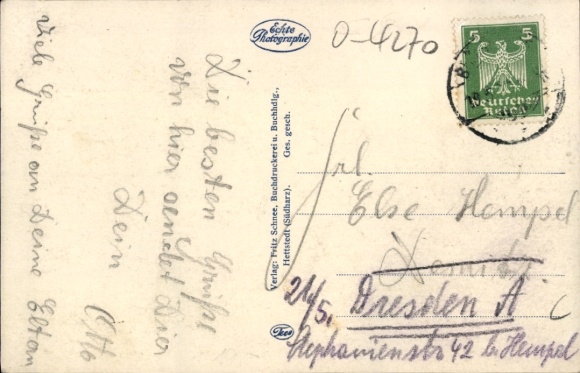 Echte
Photographie
O-4270
5 5
Deutsches
Reich
Die besten Grüße
von hier sendet Dir
Dein
Otto
Viele Grüße an Deine Eltern
Verlag: Fritz Schnee, Buchdruckerei u. Buchhdlg.,
Hettstedt (Südharz). Ges. gesch.
Frl.
Else Hempel
21/5. Dresden A
Stephanienstr 42 b/ Hempel